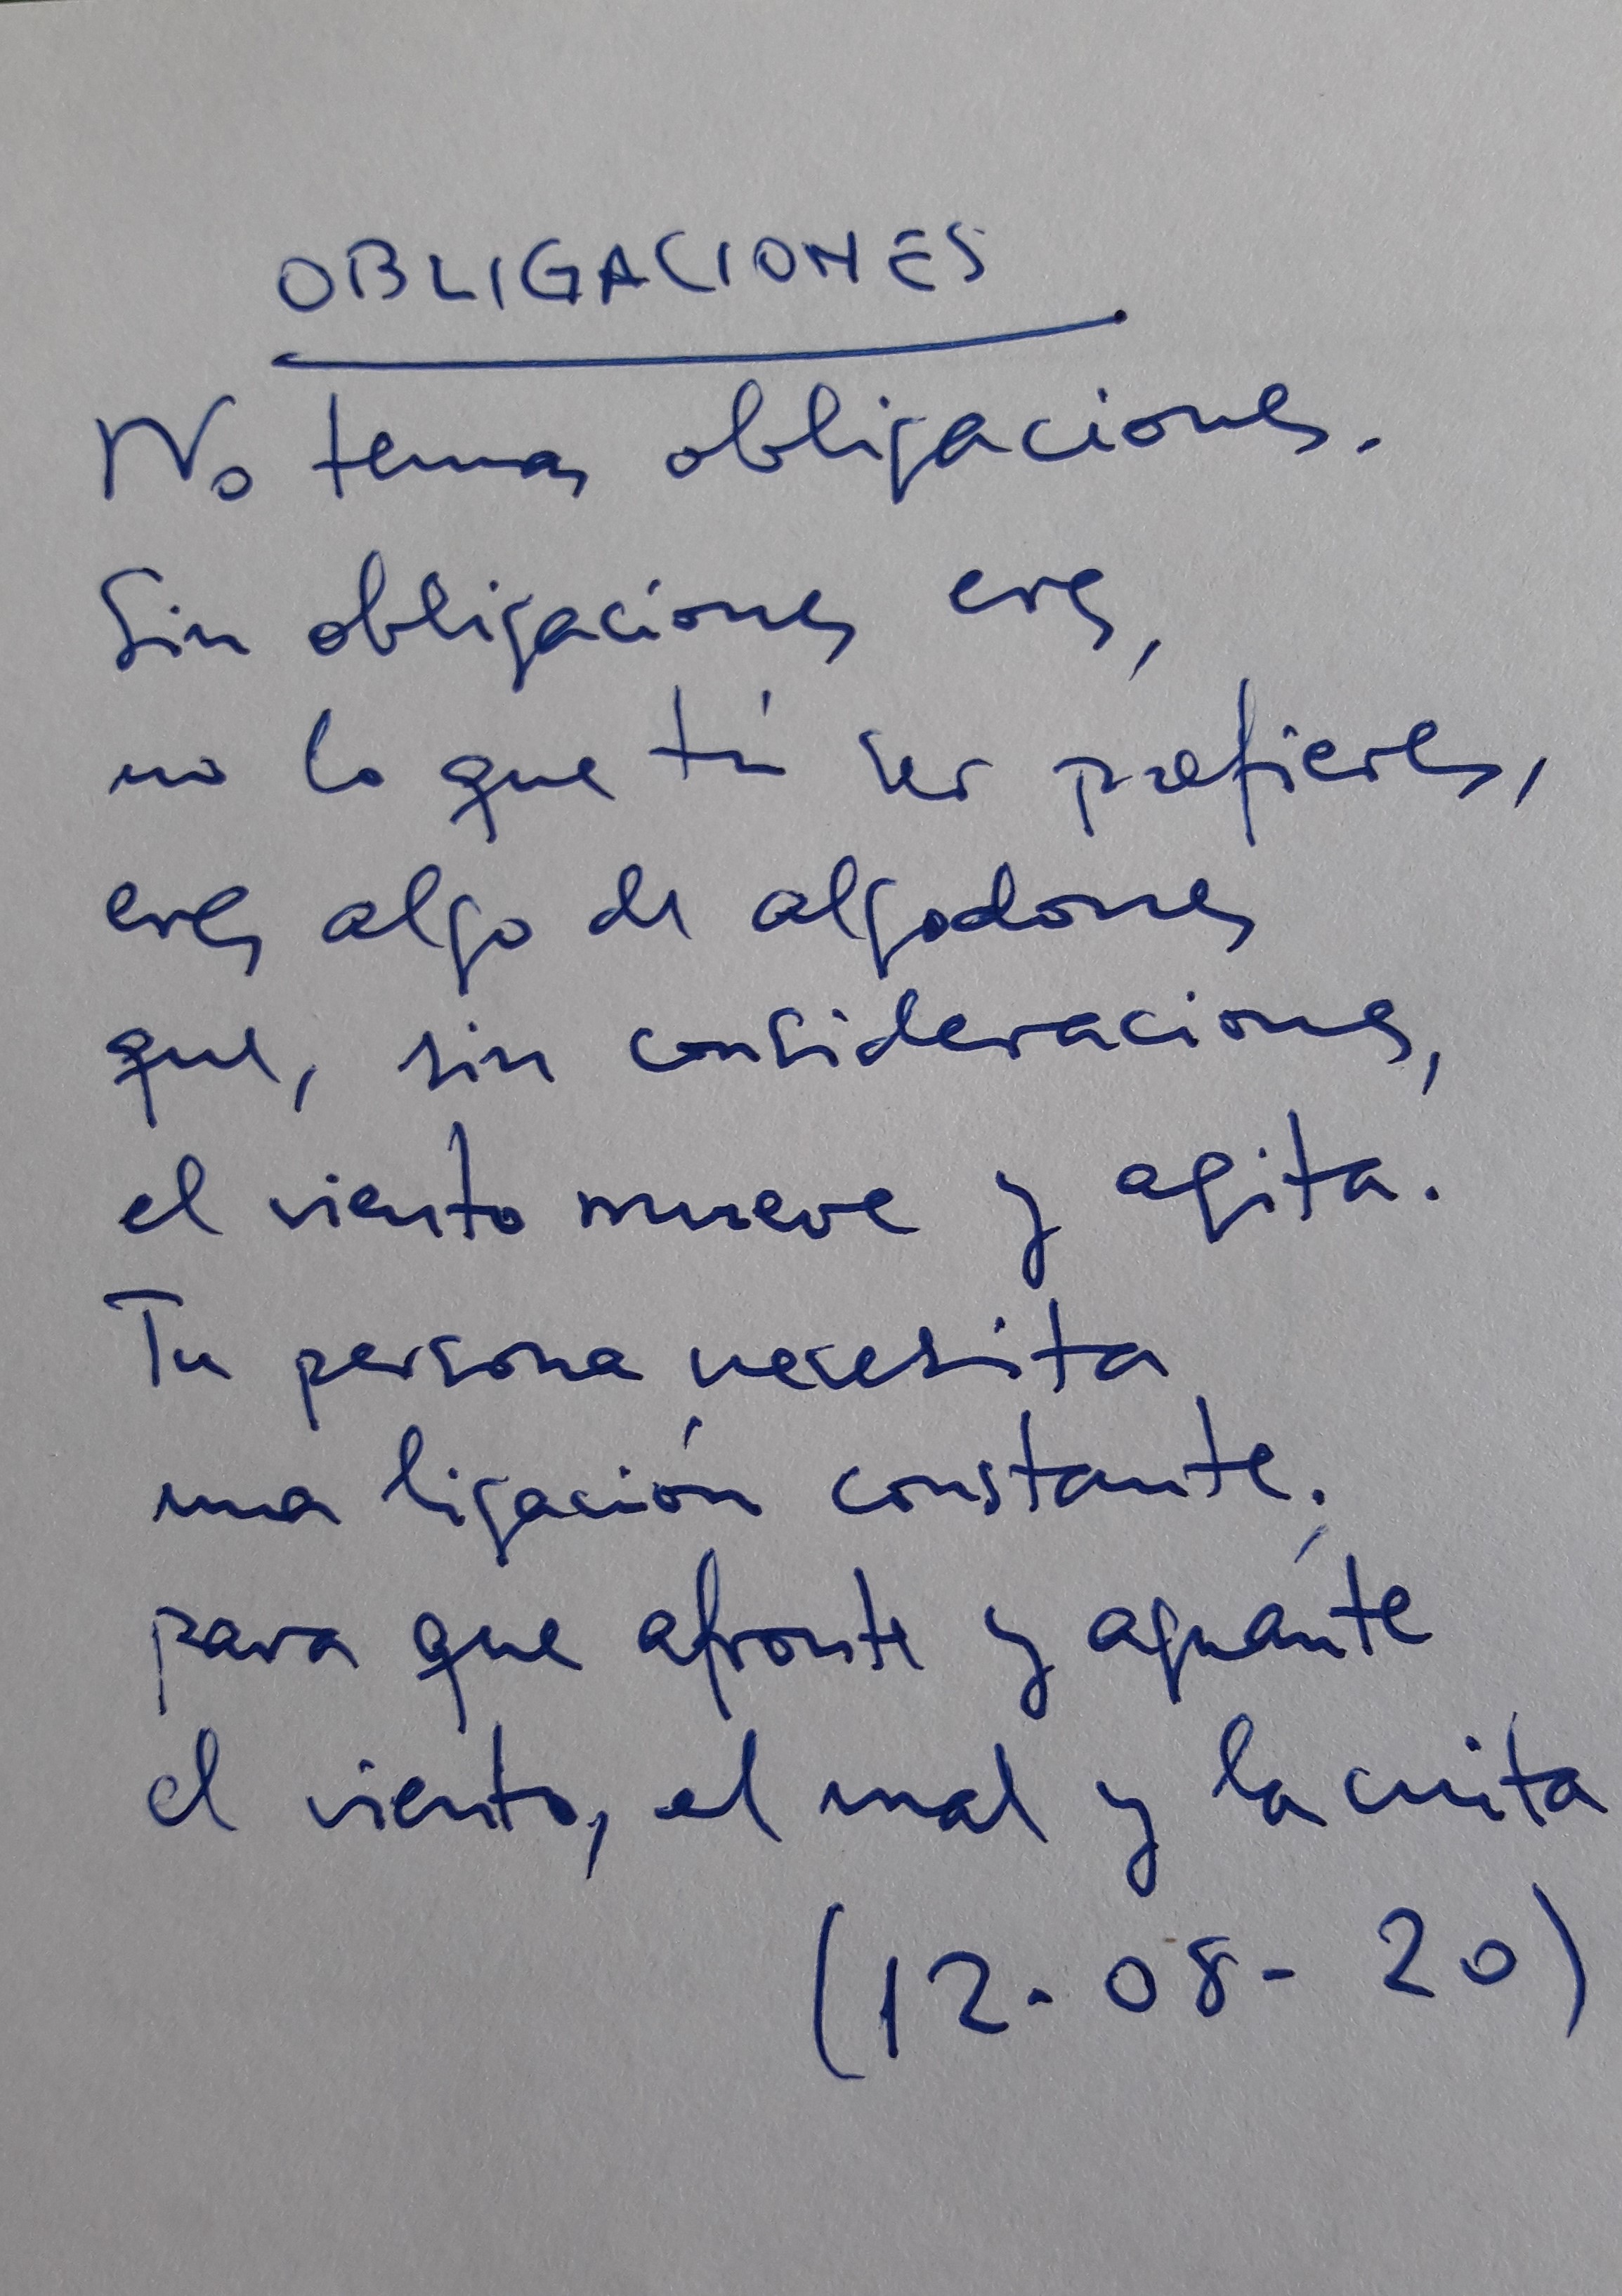 OBLIGACIONES
No temas obligaciones.
Sin obligaciones eres,
no lo que tú ser prefieres,
eres algo de algodones
que, sin consideraciones,
el viento mueve y agita.
Tu persona necesita
una ligación constante;
para que afronte y aguante
el viento, el mal y la cuita
(12-08-20)